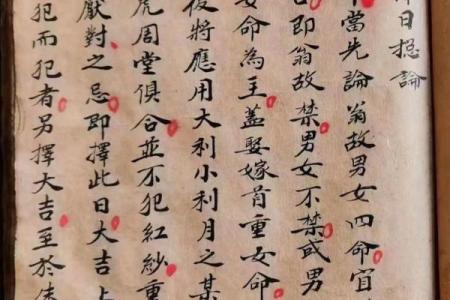 日捴論
當先論翁故男女四命宜
即翁故禁男女不禁或男
女命為主蓋娶嫁首重女命
後將應用大利小利月之某
虎周堂俱合並不犯紅紗重
厭對之忌即擇此日大吉上
犯而犯者另擇大吉至於